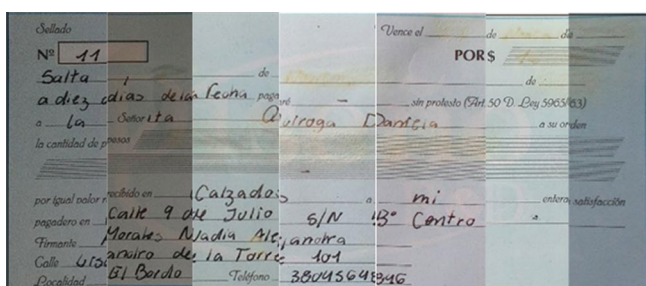 Sellado Vence el de de
Nº 11 POR $
Salta, de de
a diez dias de la fecha pagaré - sin protesto (Art. 50 D. Ley 5965/63)
a la Señorita Quiroga Daniela a su orden
la cantidad de pesos
por igual valor recibido en Calzados a mi entera satisfacción
pagadero en Calle 9 de Julio S/N Bº Centro
Firmante Morales Nadia Alejandra
Calle de la Torre 101
Localidad El Bordo Teléfono